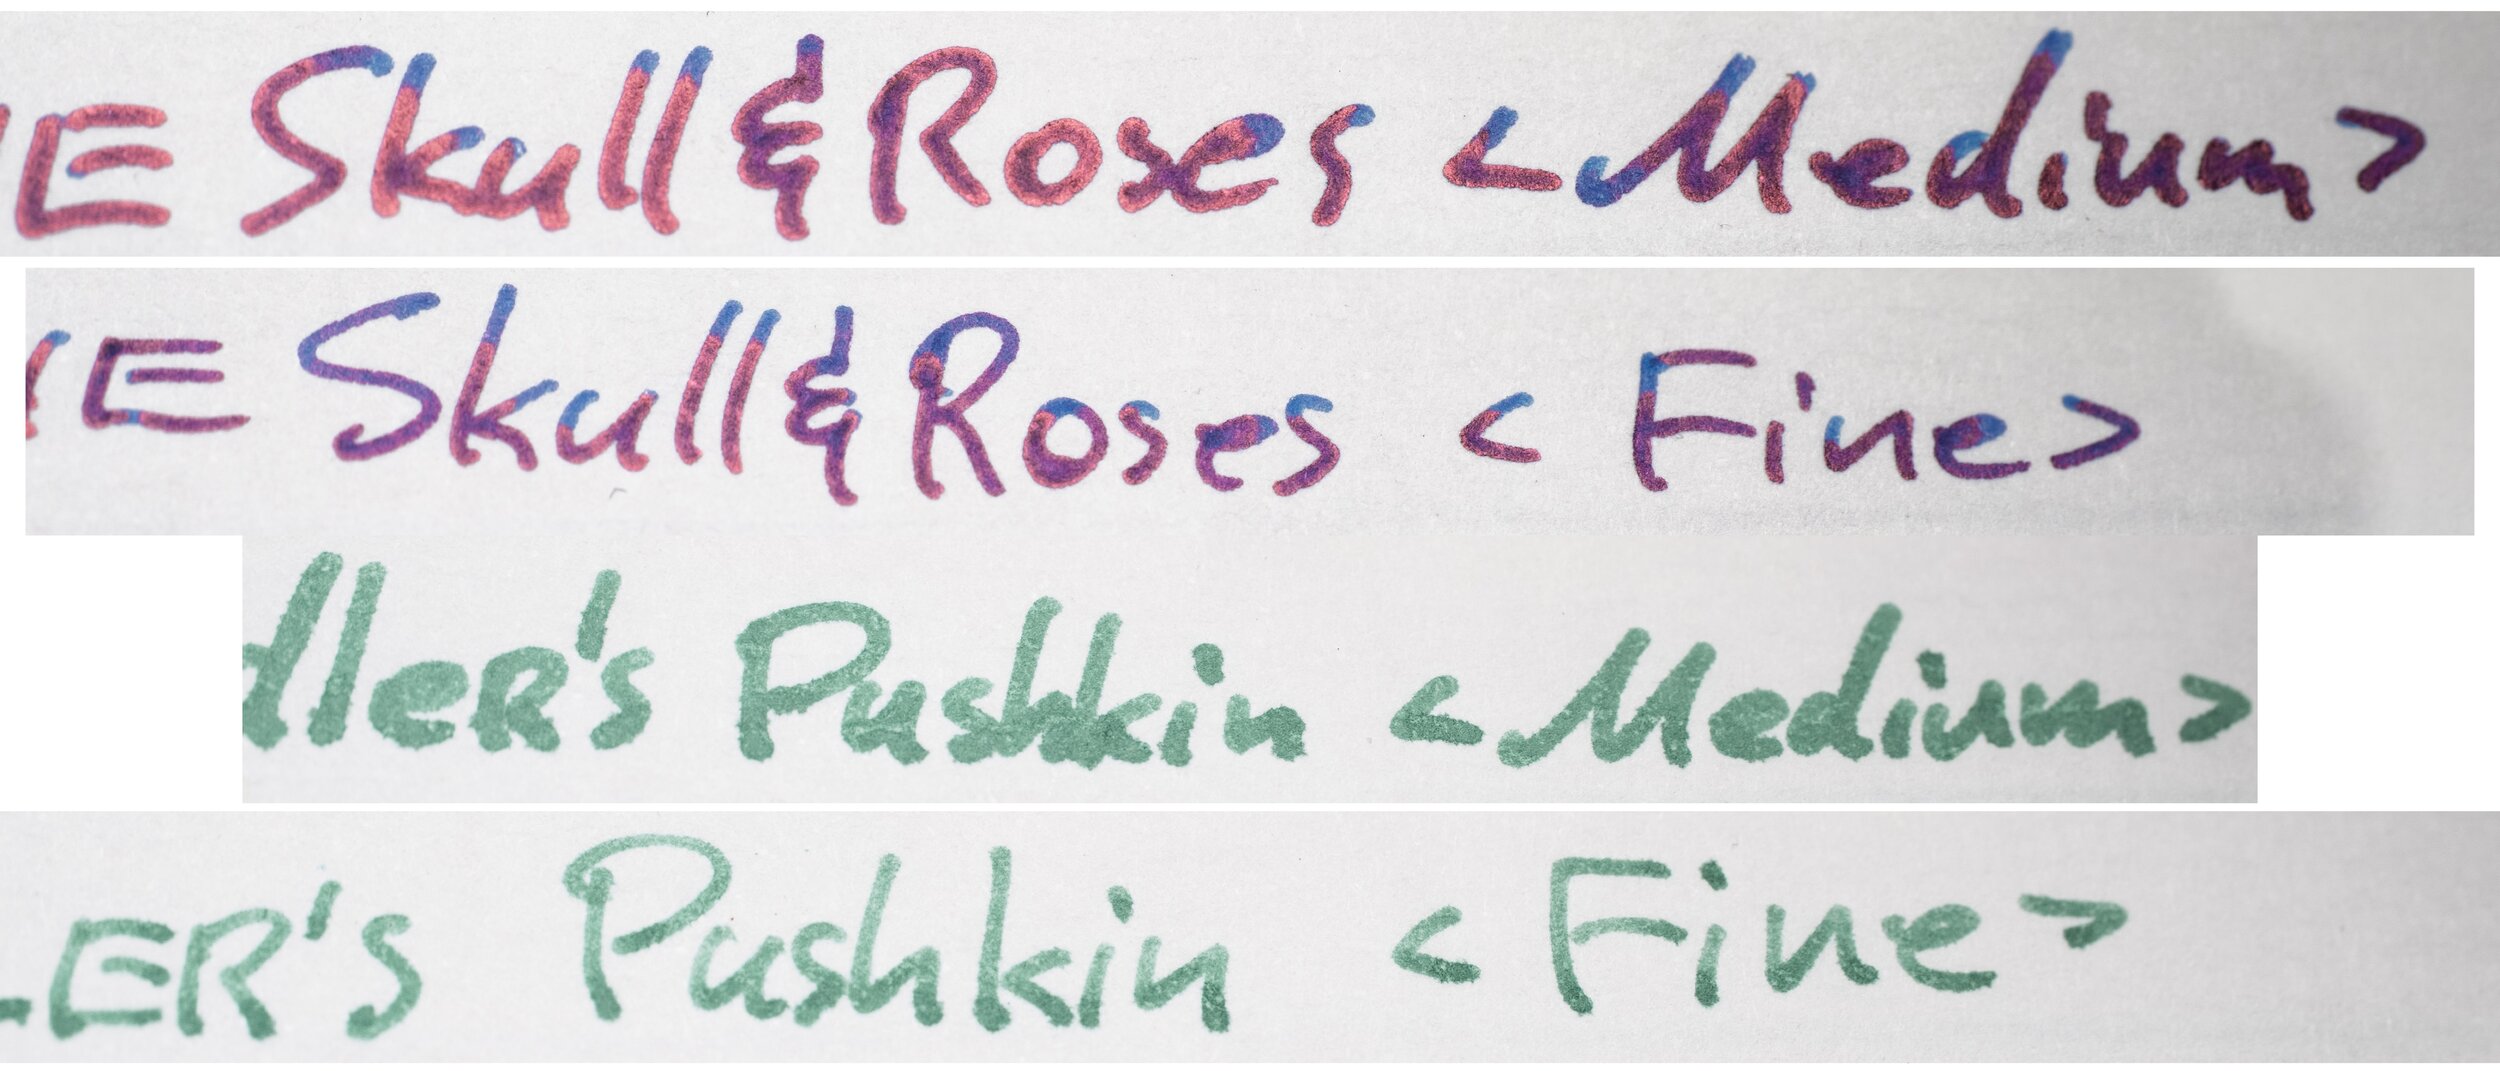 E Skull & Roses <Medium>
E Skull & Roses <Fine>
dler's Pushkin <Medium>
ER's Pushkin <Fine>